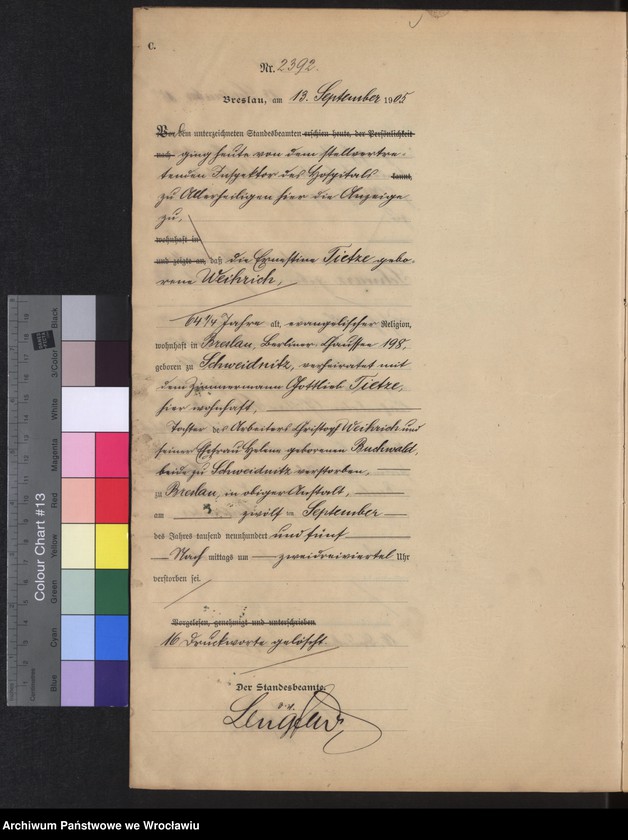 C.
Nr. 2392.
Breslau, am 13. September 1905
Vor dem unterzeichneten Standesbeamten erschien heute, der Persönlichkeit
nach ging heute von dem stellvertre-
tenden Inspektor des Hospitals kannt,
zu Allerheiligen hier die Anzeige
zu,
wohnhaft in
und zeigte an, daß die Ernestine Tietze gebo-
rene Weihrich,
64 1/4 Jahre alt, evangelischer Religion,
wohnhaft in Breslau, Berliner Chaussee 198,
geboren zu Schweidnitz, verheiratet mit
dem Zimmermann Gottlieb Tietze,
hier wohnhaft,
Tochter des Arbeiters Christoph Weihrich und
seiner Ehefrau Helene geborenen Buchwald,
beide zu Schweidnitz verstorben,
zu Breslau, in obiger Anstalt,
am zwölf ten September
des Jahres tausend neunhundert und fünf
Nach mittags um zweidreiviertel Uhr
verstorben sei.
Vorgelesen, genehmigt und unterschrieben
16 Druckworte gelöscht.
Der Standesbeamte.
Colour Chart #13
Blue
Cyan
Green
Yellow
Red
Magenta
White
3/Color
Black
Centimetres
Archiwum Państwowe we Wrocławiu